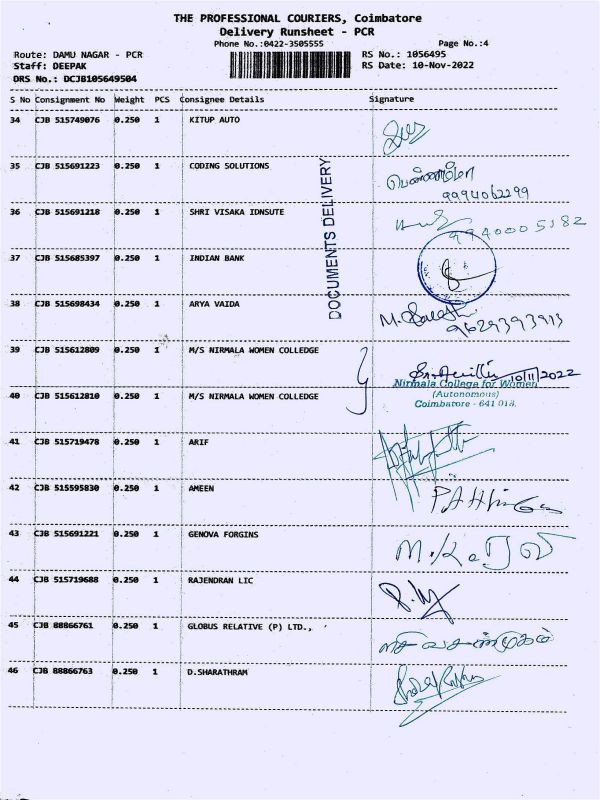 THE PROFESSIONAL COURIERS, Coimbatore
Delivery Runsheet - PCR
Phone No.:0422-3505555 Page No.:4
Route: DAMU NAGAR - PCR RS No.: 1056495
Staff: DEEPAK RS Date: 10-Nov-2022
DRS No.: DCJB105649504
S No Consignment No Weight PCS Consignee Details Signature
34 CJB 515749076 0.250 1 KITUP AUTO
35 CJB 515691223 0.250 1 CODING SOLUTIONS
9994062299
36 CJB 515691218 0.250 1 SHRI VISAKA IDNSUTE
9940005382
37 CJB 515685397 0.250 1 INDIAN BANK
DOCUMENTS DELIVERY
38 CJB 515698434 0.250 1 ARYA VAIDA M.
9629393913
39 CJB 515612809 0.250 1 M/S NIRMALA WOMEN COLLEDGE
10/11/2022
Nirmala College for Women
40 CJB 515612810 0.250 1 M/S NIRMALA WOMEN COLLEDGE (Autonomous)
Coimbatore - 641 018.
41 CJB 515719478 0.250 1 ARIF
42 CJB 515595830 0.250 1 AMEEN
43 CJB 515691221 0.250 1 GENOVA FORGINS
44 CJB 515719688 0.250 1 RAJENDRAN LIC
45 CJB 88866761 0.250 1 GLOBUS RELATIVE (P) LTD.,
46 CJB 88866763 0.250 1 D.SHARATHRAM